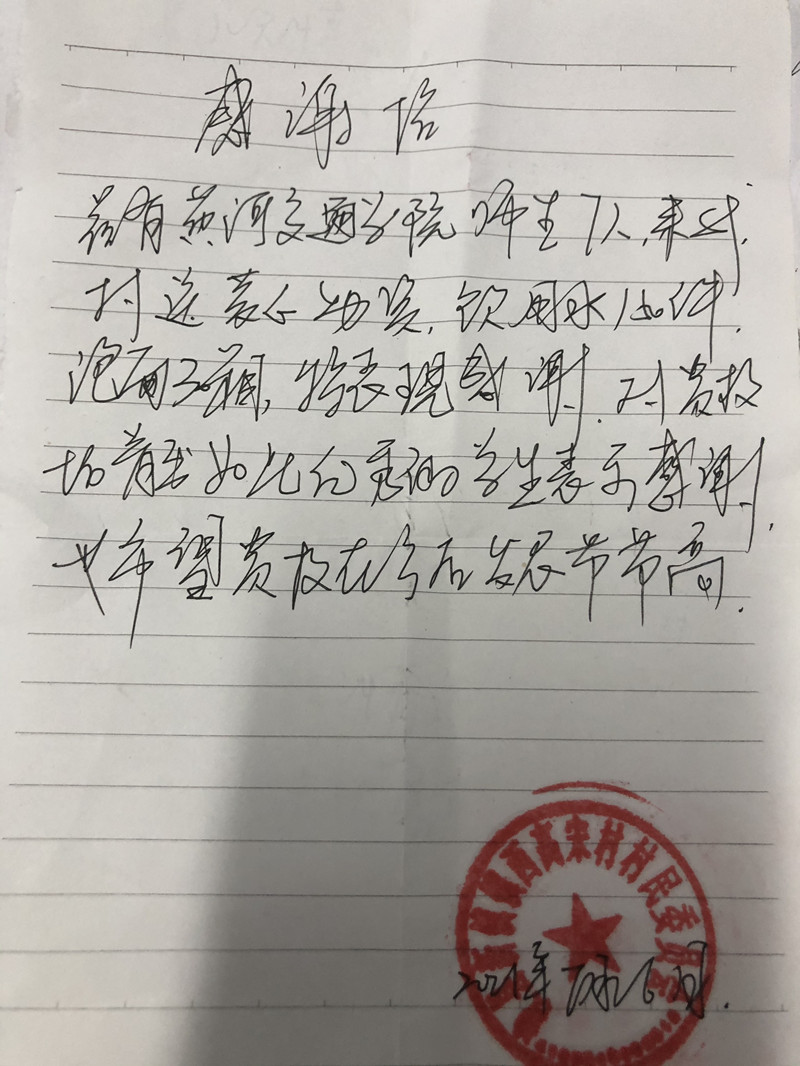 感谢信
兹有黄河交通学院师生7人,来我
村送慰问物资,饮用水150件,
泡面30箱,特表现感谢.对贵校
培育出如此优秀的学生表示感谢,
也希望贵校在今后发展节节高.
镇西高宋村村民委员会
2021年7月26日.